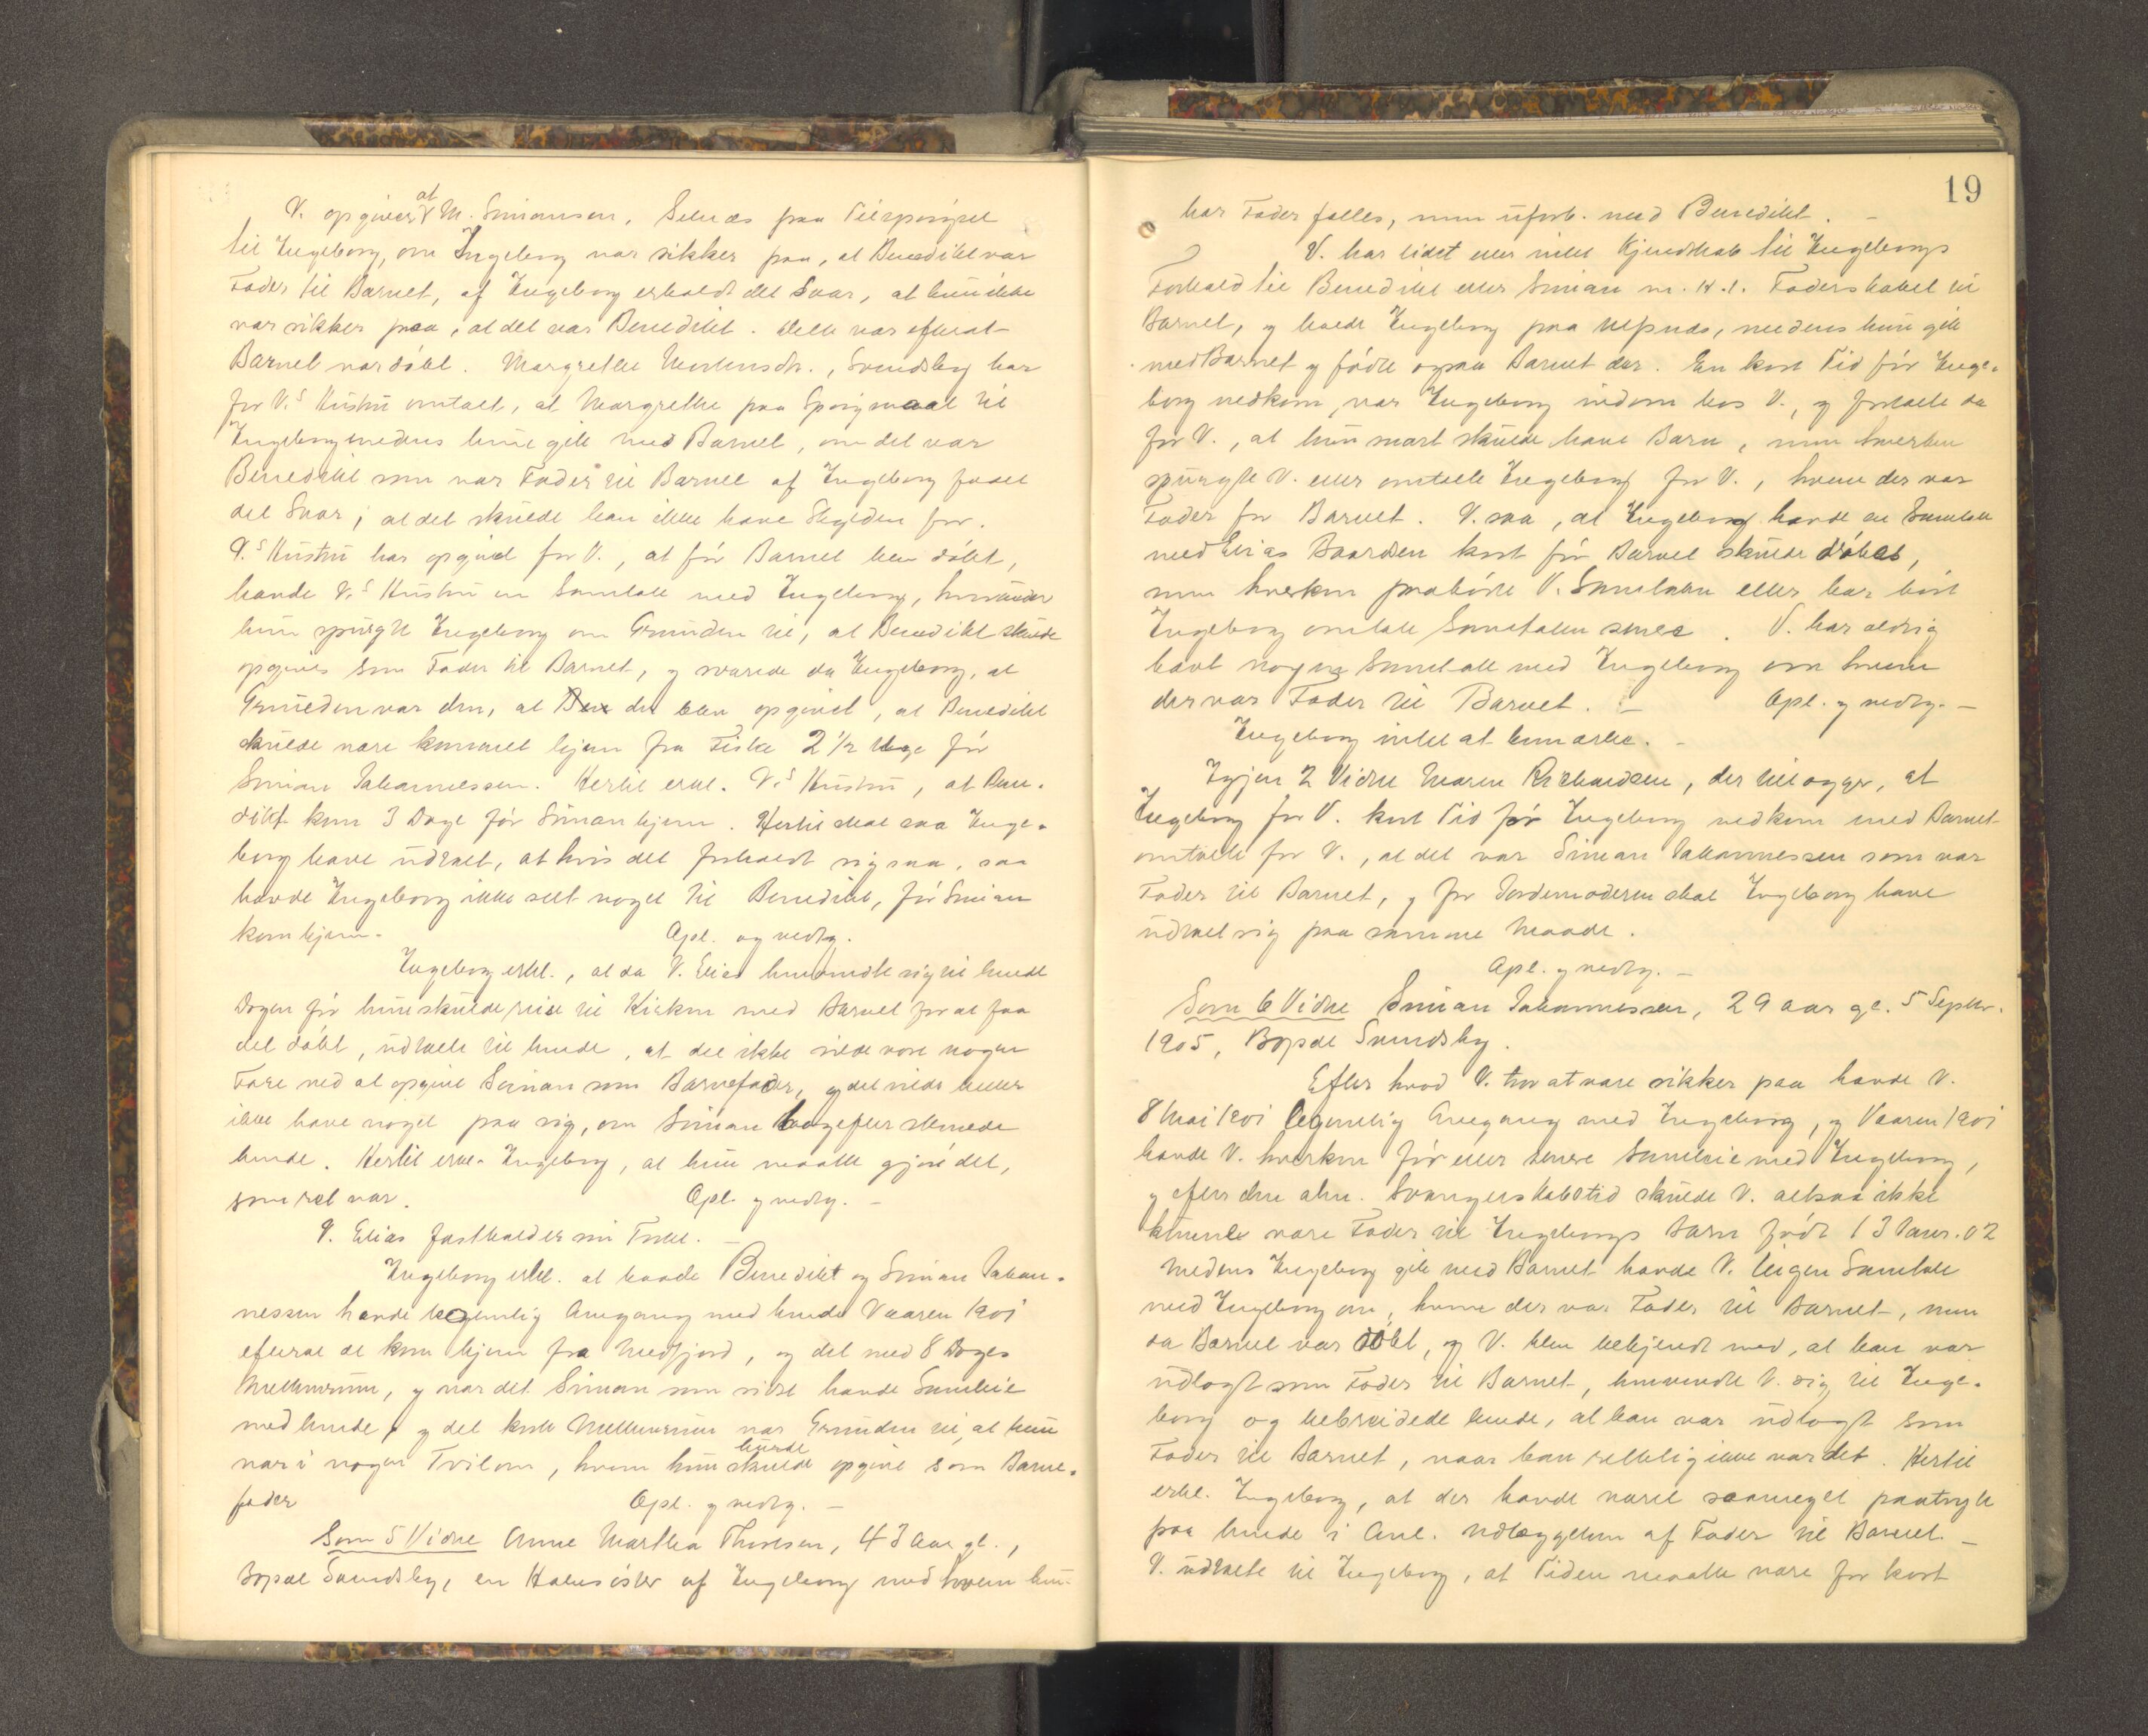 V. opgiver at M. Simonsen, Selnæs paa Tilspørgsel
til Ingeborg, om Ingeborg var sikker paa, at Benedikt var
Fader til Barnet, af Ingeborg erholdt det Svar, at hun ikke
var sikker paa, at det var Benedikt. Dette var efterat
Barnet var døbt. Margrethe Mortensdr., Svendsby har
for V.s Hustru omtalt, at Margrethe paa Spørgsmaal til
Ingeborg medens hun gik med Barnet, om det var
Benedikt som var Fader til Barnet af Ingeborg faaet
det Svar, at det skulde han ikke have Skylden for.
V.s Hustru har opgivet for V., at før Barnet blev døbt,
havde V.s Hustru en Samtale med Ingeborg, hvorunder
hun spurgte Ingeborg om Grunden til, at Benedikt skulde
opgives som Fader til Barnet, og svarede da Ingeborg, at
Grunden var den, at Ben det blev opgivet, at Benedikt
skulde være kommet hjem fra Fiske 2 1/2 Uge før
Simon Johannessen. Hertil erkl. V.s Hustru, at Bene-
dikt kom 3 Dage før Simon hjem. Hertil skal saa Inge-
borg have udtalt, at hvis det forholdt sig saa, saa
havde Ingeborg ikke selt noget til Benedikt, før Simon
kom hjem. Opl. og vedtg.
Ingeborg erkl., at da V. Elias henvendte sig til hende
Dagen før hun skulde reise til Kirken med Barnet for at faa
det døbt, udtalte til hende, at det ikke vilde være nogen
Fare ved at opgive Simon som Barnefader, og det vilde heller
ikke have noget paa sig, om Simon bagefter stevnede
hende. Hertil erkl. Ingeborg, at hun maatte gjøre det,
som ret var. Opl. og vedtg. —
V. Elias fastholder sin Forkl. —
Ingeborg erkl. at baade Benedikt og Simon Johan-
nessen havde legemlig Omgang med hende Vaaren 1901
efterat de kom hjem fra Mefjord, og det med 8 Dages
Mellemrum, og var det Simon som sidst havde Samleie
med hende, og det korte Mellemrum var Grunden til, at hun
var i nogen Tvil om, hvem hun skulde burde opgive som Barne-
fader Opl. og vedtg. —
Som 5 Vidne Anne Martha Thoresen, 43 Aar gl.,
Bopæl Svendsby, en Halvsøster af Ingeborg med hvem hun
19
har Fader fælles, men uforb. med Benedikt. —
V. har lidet eller intet Kjendskab til Ingeborgs
Forhold til Benedikt eller Simon m. H. t. Faderskabet til
Barnet, og boede Ingeborg paa, medens hun gik
med Barnet og fødte ogsaa Barnet der. En kort Tid før Inge-
borg nedkom, var Ingeborg indom hos V., og fortalte da
for V., at hun snart skulde have Barn, men hverken
spurgte V. eller omtalte Ingeborg for V., hvem der var
Fader for Barnet. V. saa, at Ingeborg havde en Samtale
med Elias Baardsen kort før Barnet skulde døbes,
men hverken paahørte V. Samtalen eller har hørt
Ingeborg omtale Samtalen senere. V. har aldrig
havt nogen Samtale med Ingeborg om hvem
der var Fader til Barnet. — Opl. og vedtg. —
Ingeborg intet at bemærke. —
Igjen 2 Vidne Maren Richardsen, der tilføyer, at
Ingeborg for V. kort Tid før Ingeborg nedkom med Barnet
omtalte for V., at det var Simon Johannessen som var
Fader til Barnet, og for Jordemoderen skal Ingeborg have
udtalt sig paa samme Maade.
Opl. og vedtg. —
Som 6 Vidne Simon Johannessen, 29 aar gl. 5 Septbr.
1905, Bopæl Svendsby.
Efter hvad V. tror at være sikker paa havde V.
8 Mai 1901 legemlig Omgang med Ingeborg, og Vaaren 1901
havde V. hverken før eller senere Samleie med Ingeborg,
og efter den alm. Svangerskabstid skulde V. altsaa ikke
kunne være Fader til Ingeborgs Barn født 13 Janr. 02
Medens Ingeborg gik med Barnet havde V. ingen Samtale
med Ingeborg om, hvem der var Fader til Barnet, men
da Barnet var døbt, og V. blev bekjendt med, at han var
udlagt som Fader til Barnet, henvendte V. sig til Inge-
borg og bebreidede hende, at han var udlagt som
Fader til Barnet, naar han rettelig ikke var det. Hertil
erkl. Ingeborg, at der havde været saameget paatrykk
paa hende i Anl. Udlæggelsen af Fader til Barnet. —
V. udtalte til Ingeborg, at Tiden maatte være for kort